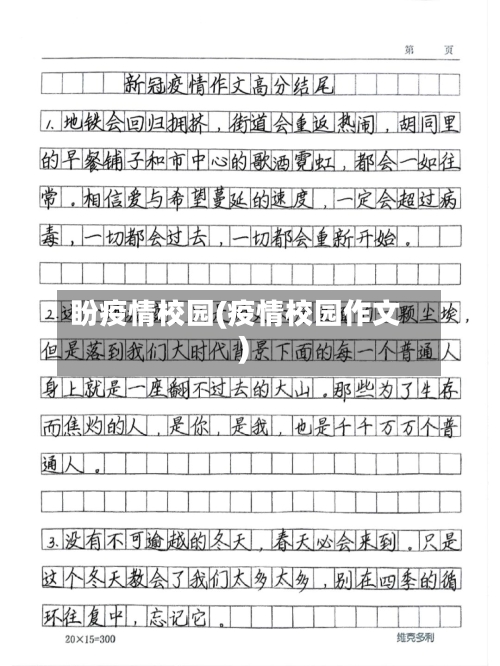 第 页
新冠疫情作文高分结尾
1.地铁会回归拥挤，街道会重返热闹，胡同里
的早餐铺子和市中心的歌酒霓虹，都会一如往
常。相信爱与希望蔓延的速度，一定会超过病
毒，一切都会过去，一切都会重新开始。
盼疫情校园(疫情校园作文
)
2. 颗尘埃，
但是落到我们大时代背景下面的每一个普通人
身上就是一座翻不过去的大山。那些为了生存
而焦灼的人，是你，是我，也是千千万万个普
通人。
3.没有不可逾越的冬天，春天必会来到。只是
这个冬天教会了我们太多太多，别在四季的循
环往复中，忘记它。
20×15=300 维克多利